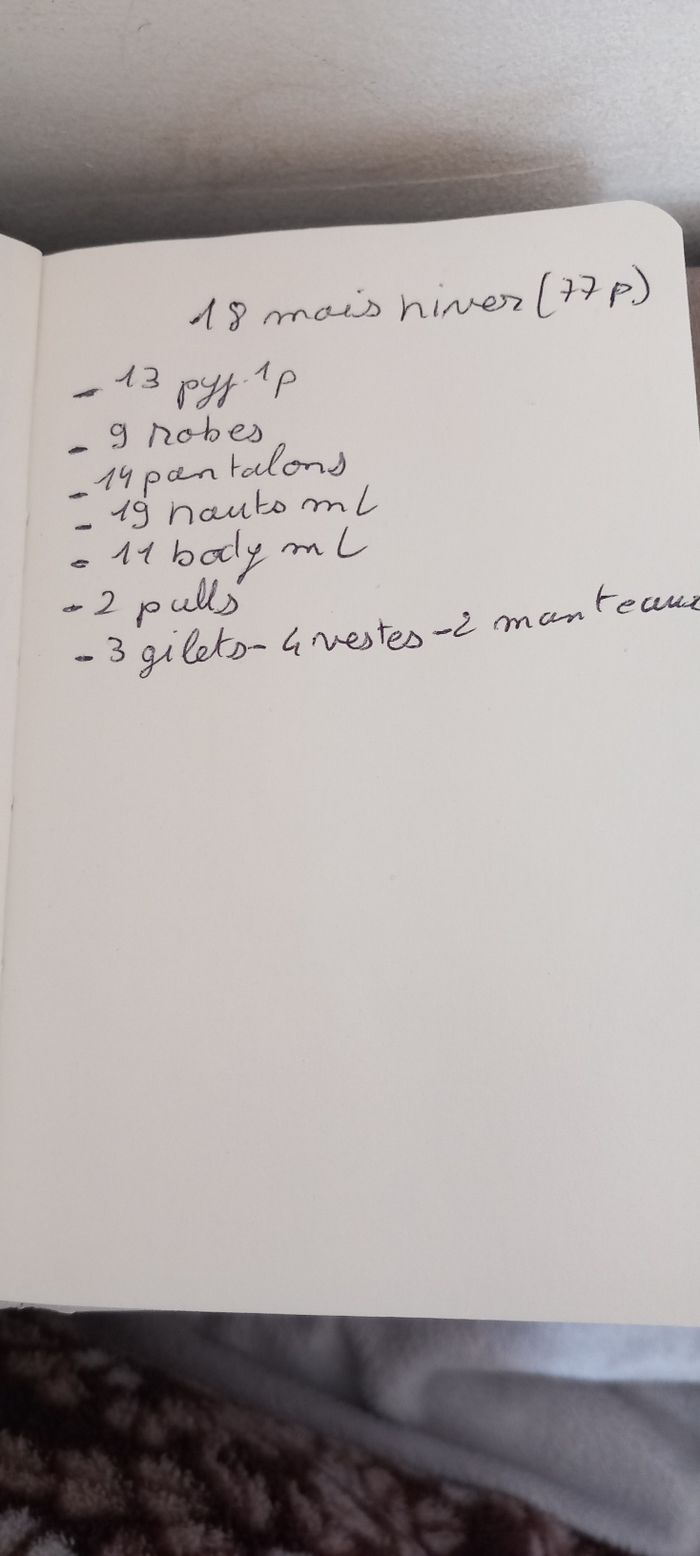 18 mois hiver (77 p)
- 13 pyj. 1p
- 9 robes
- 14 pantalons
- 19 hauts mL
- 11 body mL
- 2 pulls
- 3 gilets - 4 vestes - 2 manteaux